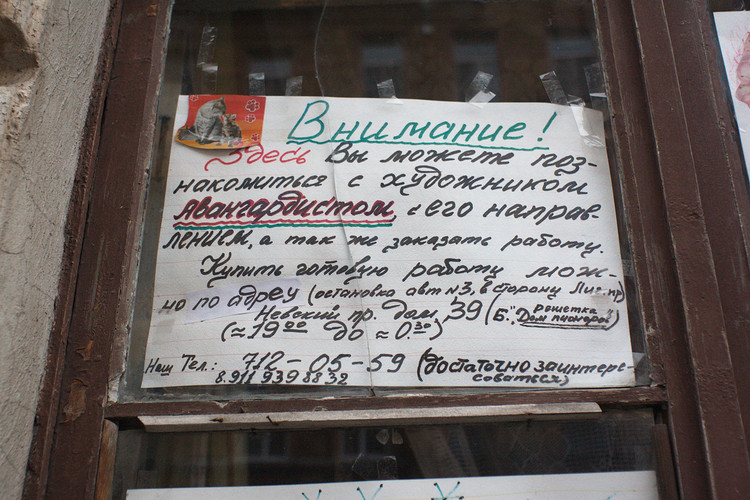 Внимание!
Здесь Вы можете поз-
накомиться с художником
авангардистом, с его направ-
лением, а так же заказать работу.
Купить готовую работу мож-
но по адресу (остановка авт N3, в сторону Лиг. пр)
Невский пр. дом, 39 (Б. "решетка Дом пионеров")
(≈19 00 до ≈ 0.30)
Наш Тел.: 712-05-59 (достаточно заинтере-
8.911 939 88 32 соваться)